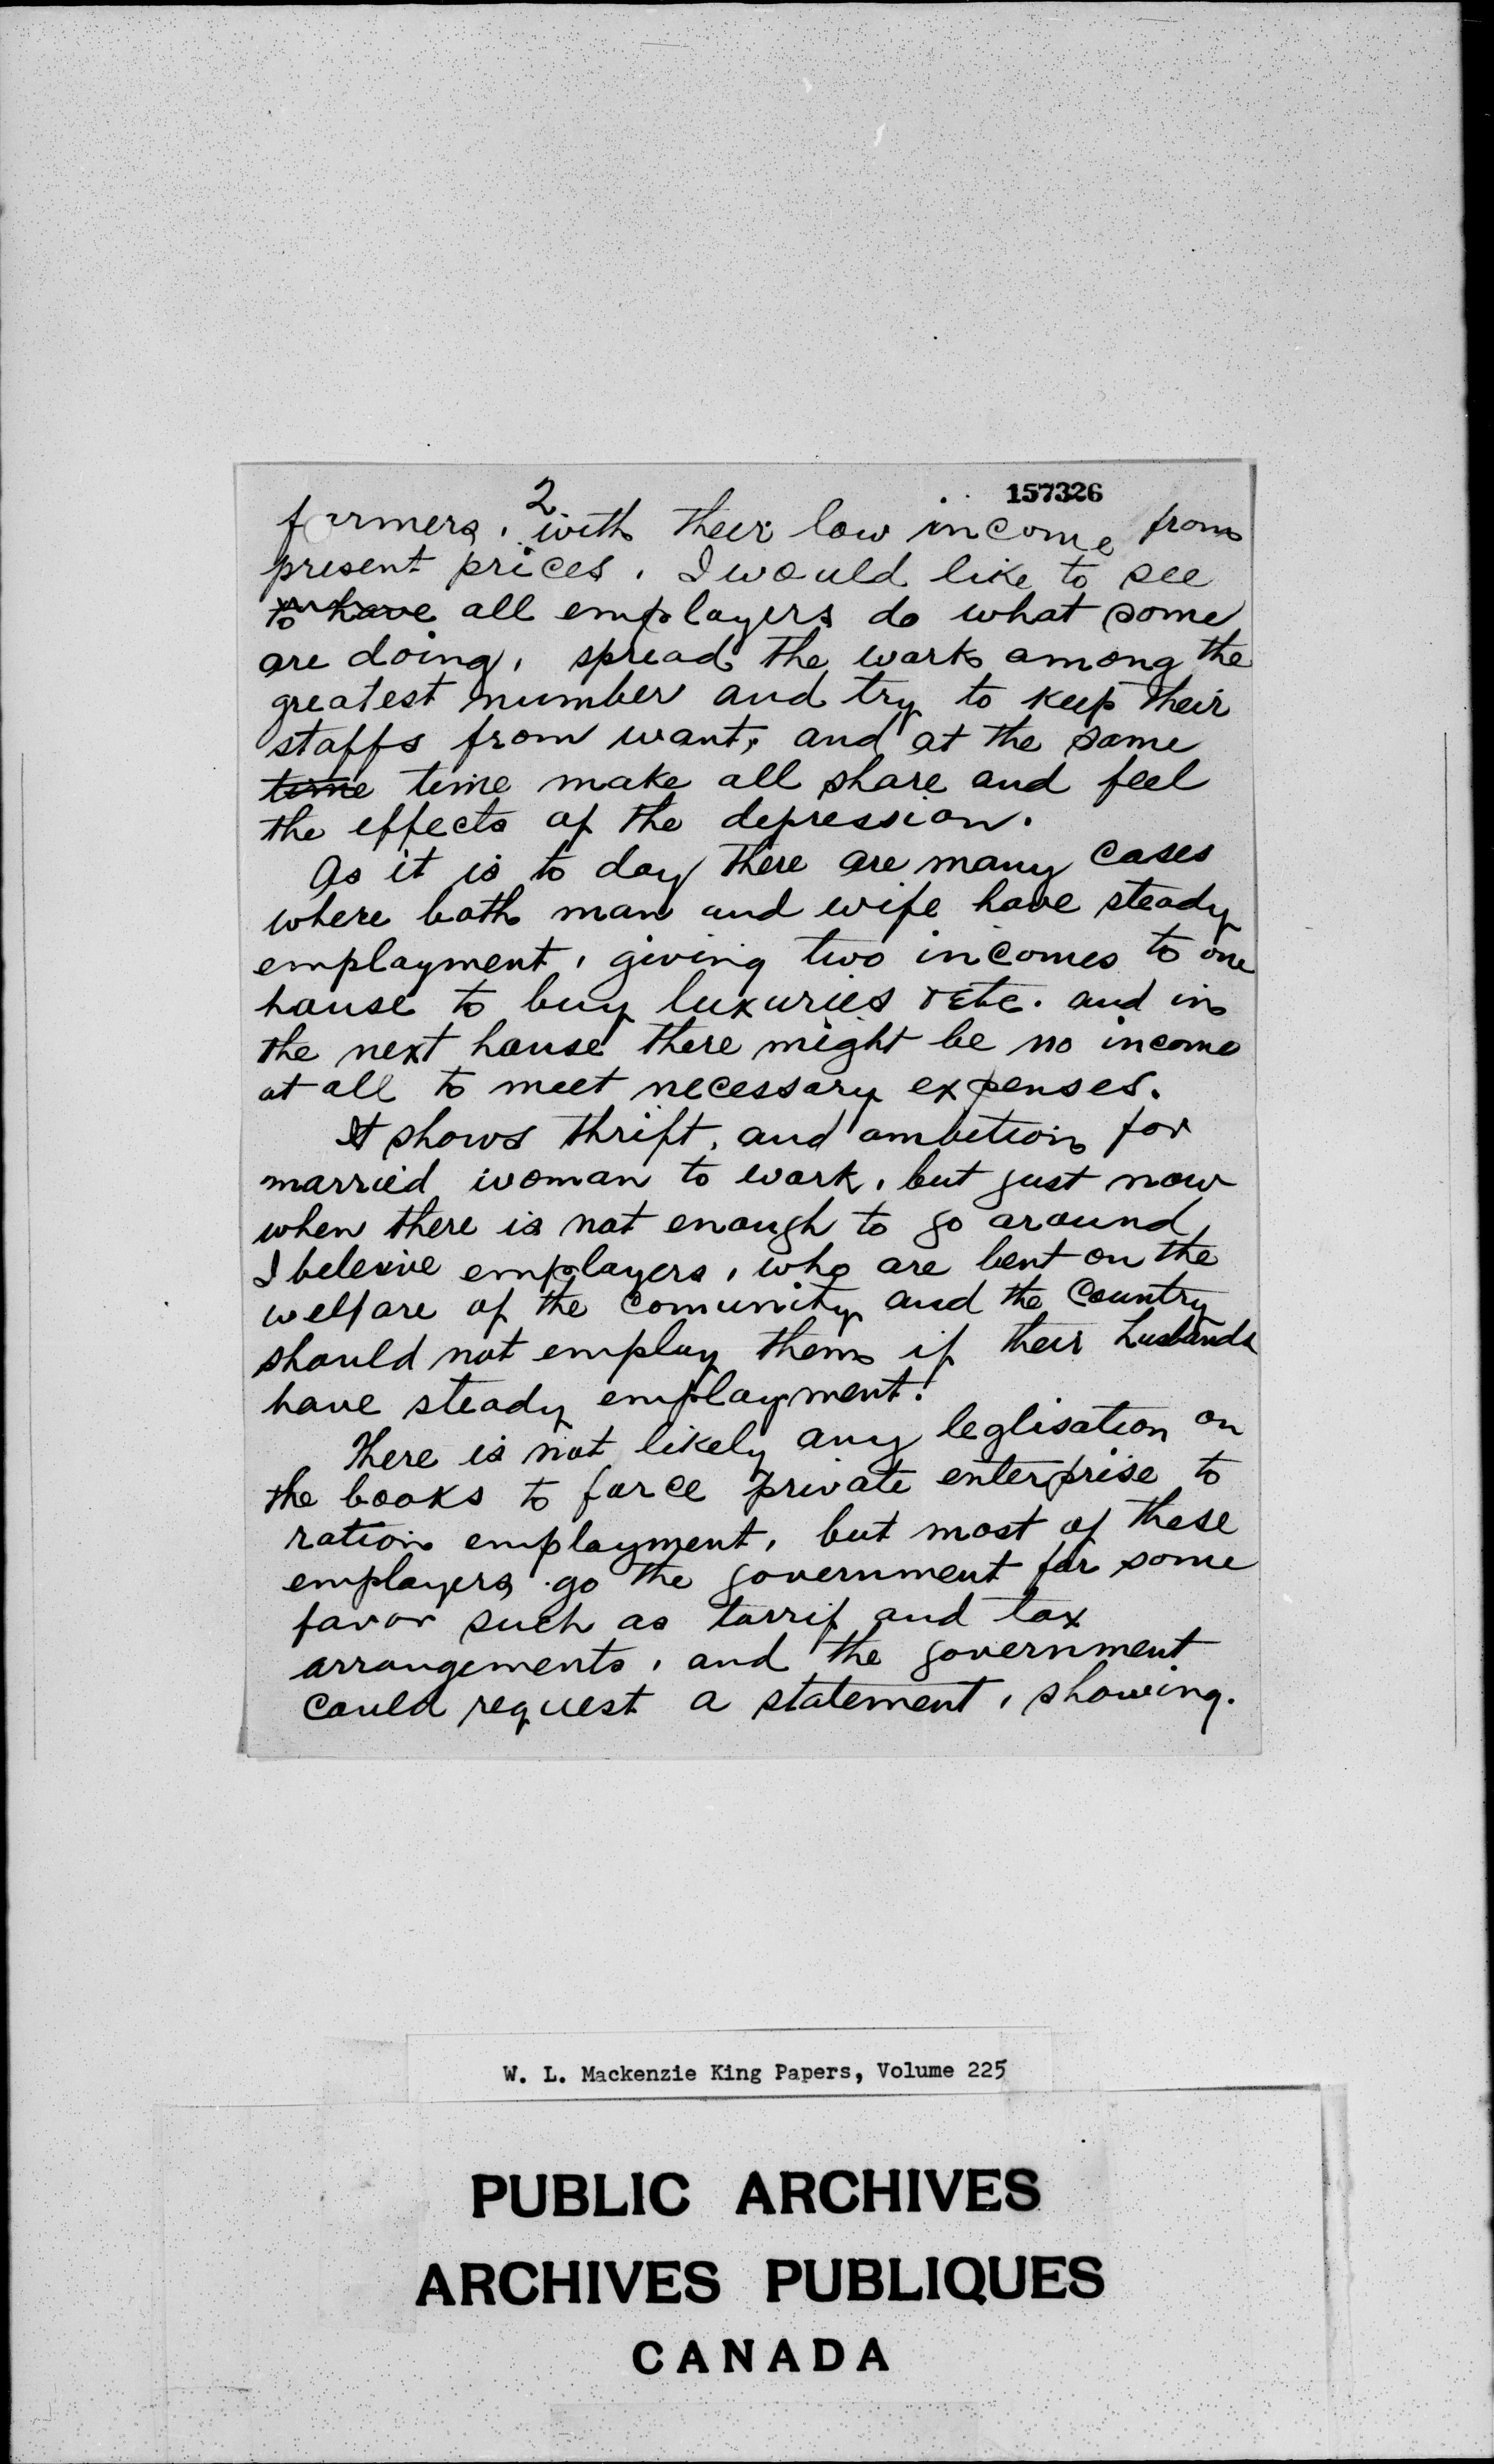 2
157326
farmers, with their low income from
present prices. I would like to see
to have all employers do what some
are doing, spread the work among the
greatest number and try to keep their
staffs from want, and at the same
time time make all share and feel
the effects of the depression.
As it is to day there are many cases
where both man and wife have steady
employment, giving two incomes to one
house to buy luxuries & etc. and in
the next house there might be no income
at all to meet necessary expenses.
It shows thrift, and ambition for
married woman to work, but just now
when there is not enough to go around,
I beleive employers, who are bent on the
welfare of the comunity and the Country
should not employ them if their husbands
have steady employment!
There is not likely any leglisation on
the books to force private enterprise to
ration employment, but most of these
employers go the government for some
favor such as tarrif and tax
arrangements, and the government
could request a statement, showing.
W. L. Mackenzie King Papers, Volume 225
PUBLIC ARCHIVES
ARCHIVES PUBLIQUES
CANADA